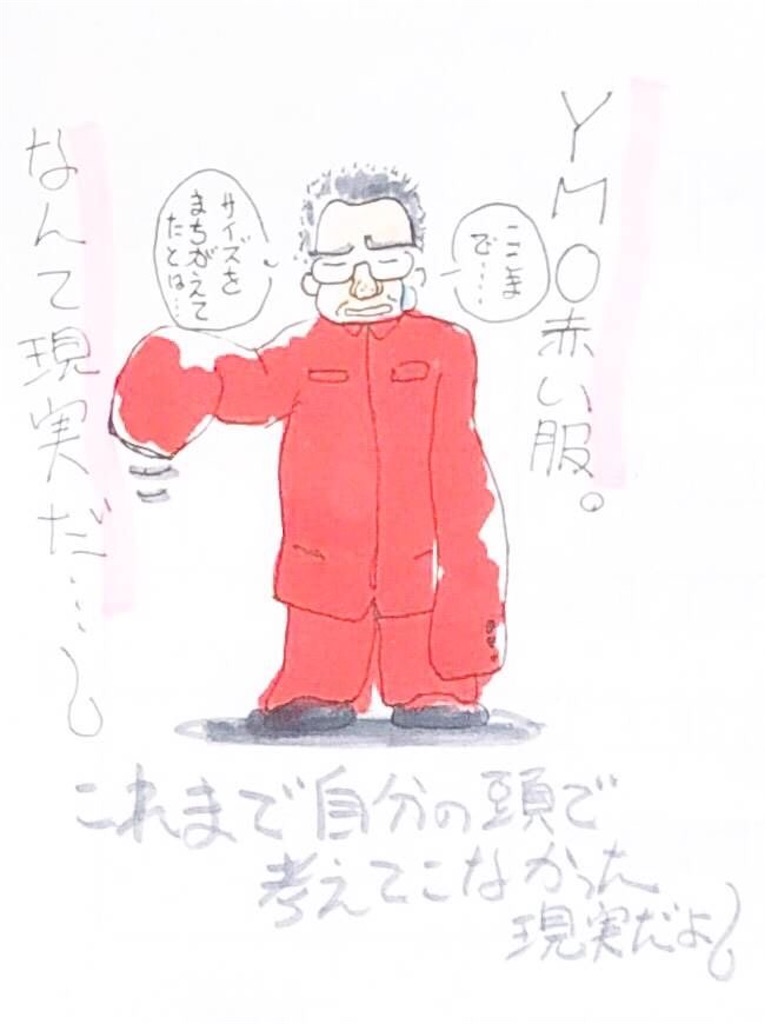 YMO赤い服。
ここま
で・・・
サイズを
まちがえて
たとは・・・
なんて現実だ・・・・
これまで自分の頭で
考えてこなかった
現実だよ